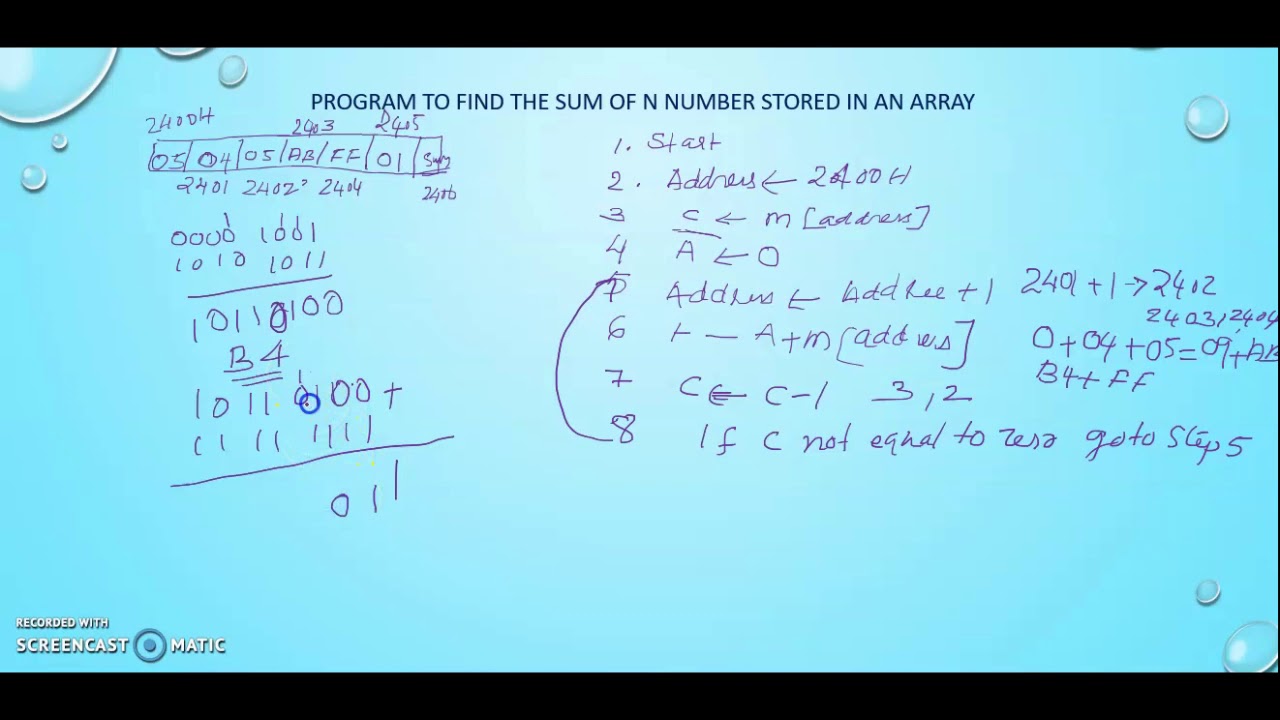 PROGRAM TO FIND THE SUM OF N NUMBER STORED IN AN ARRAY
2400H 2403 2405
05 04 05 AB FF 01 Sum
2401 2402 2404 2406
1 1 1
0000 1001
1010 1011
10110100
B4
1
1011 0100 +
11 11 1111
0 1 1
1. Start
2. Address ← 2400H
3 C ← M[address]
4 A ← 0
5 Address ← Addree + 1 2401 + 1 → 2402
2403, 2404
6 A + m[address] 0+04+05=09+AB
B4+FF
7 C ← C-1 3,2
8 If C not equal to zero goto Step 5
RECORDED WITH
SCREENCAST MATIC